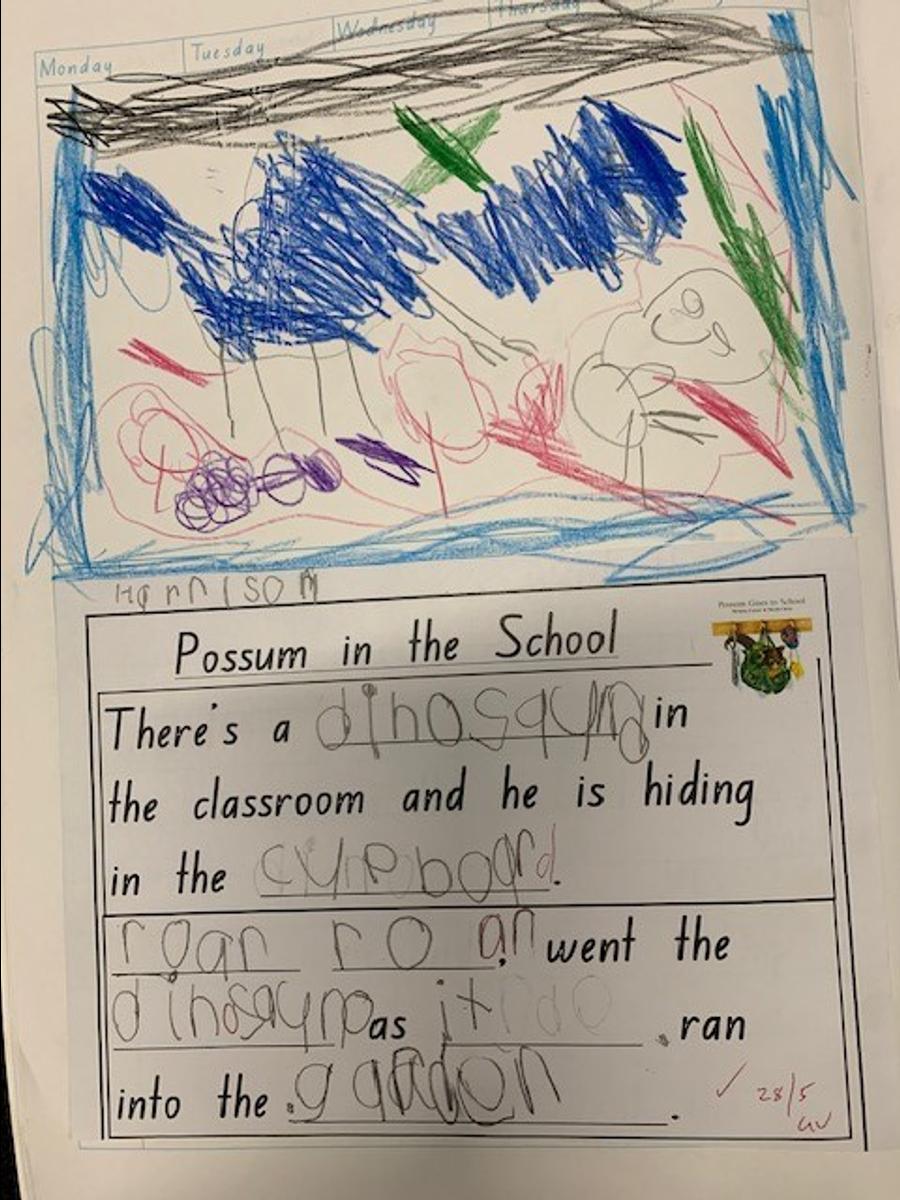 Monday Tuesday Wednesday Thursday
Harrison
Possum Goes to School
Possum in the School
There's a dinosaur in
the classroom and he is hiding
in the cupboard.
roar roar, went the
dinosaur as it ran
into the garden.
✓ 28/5